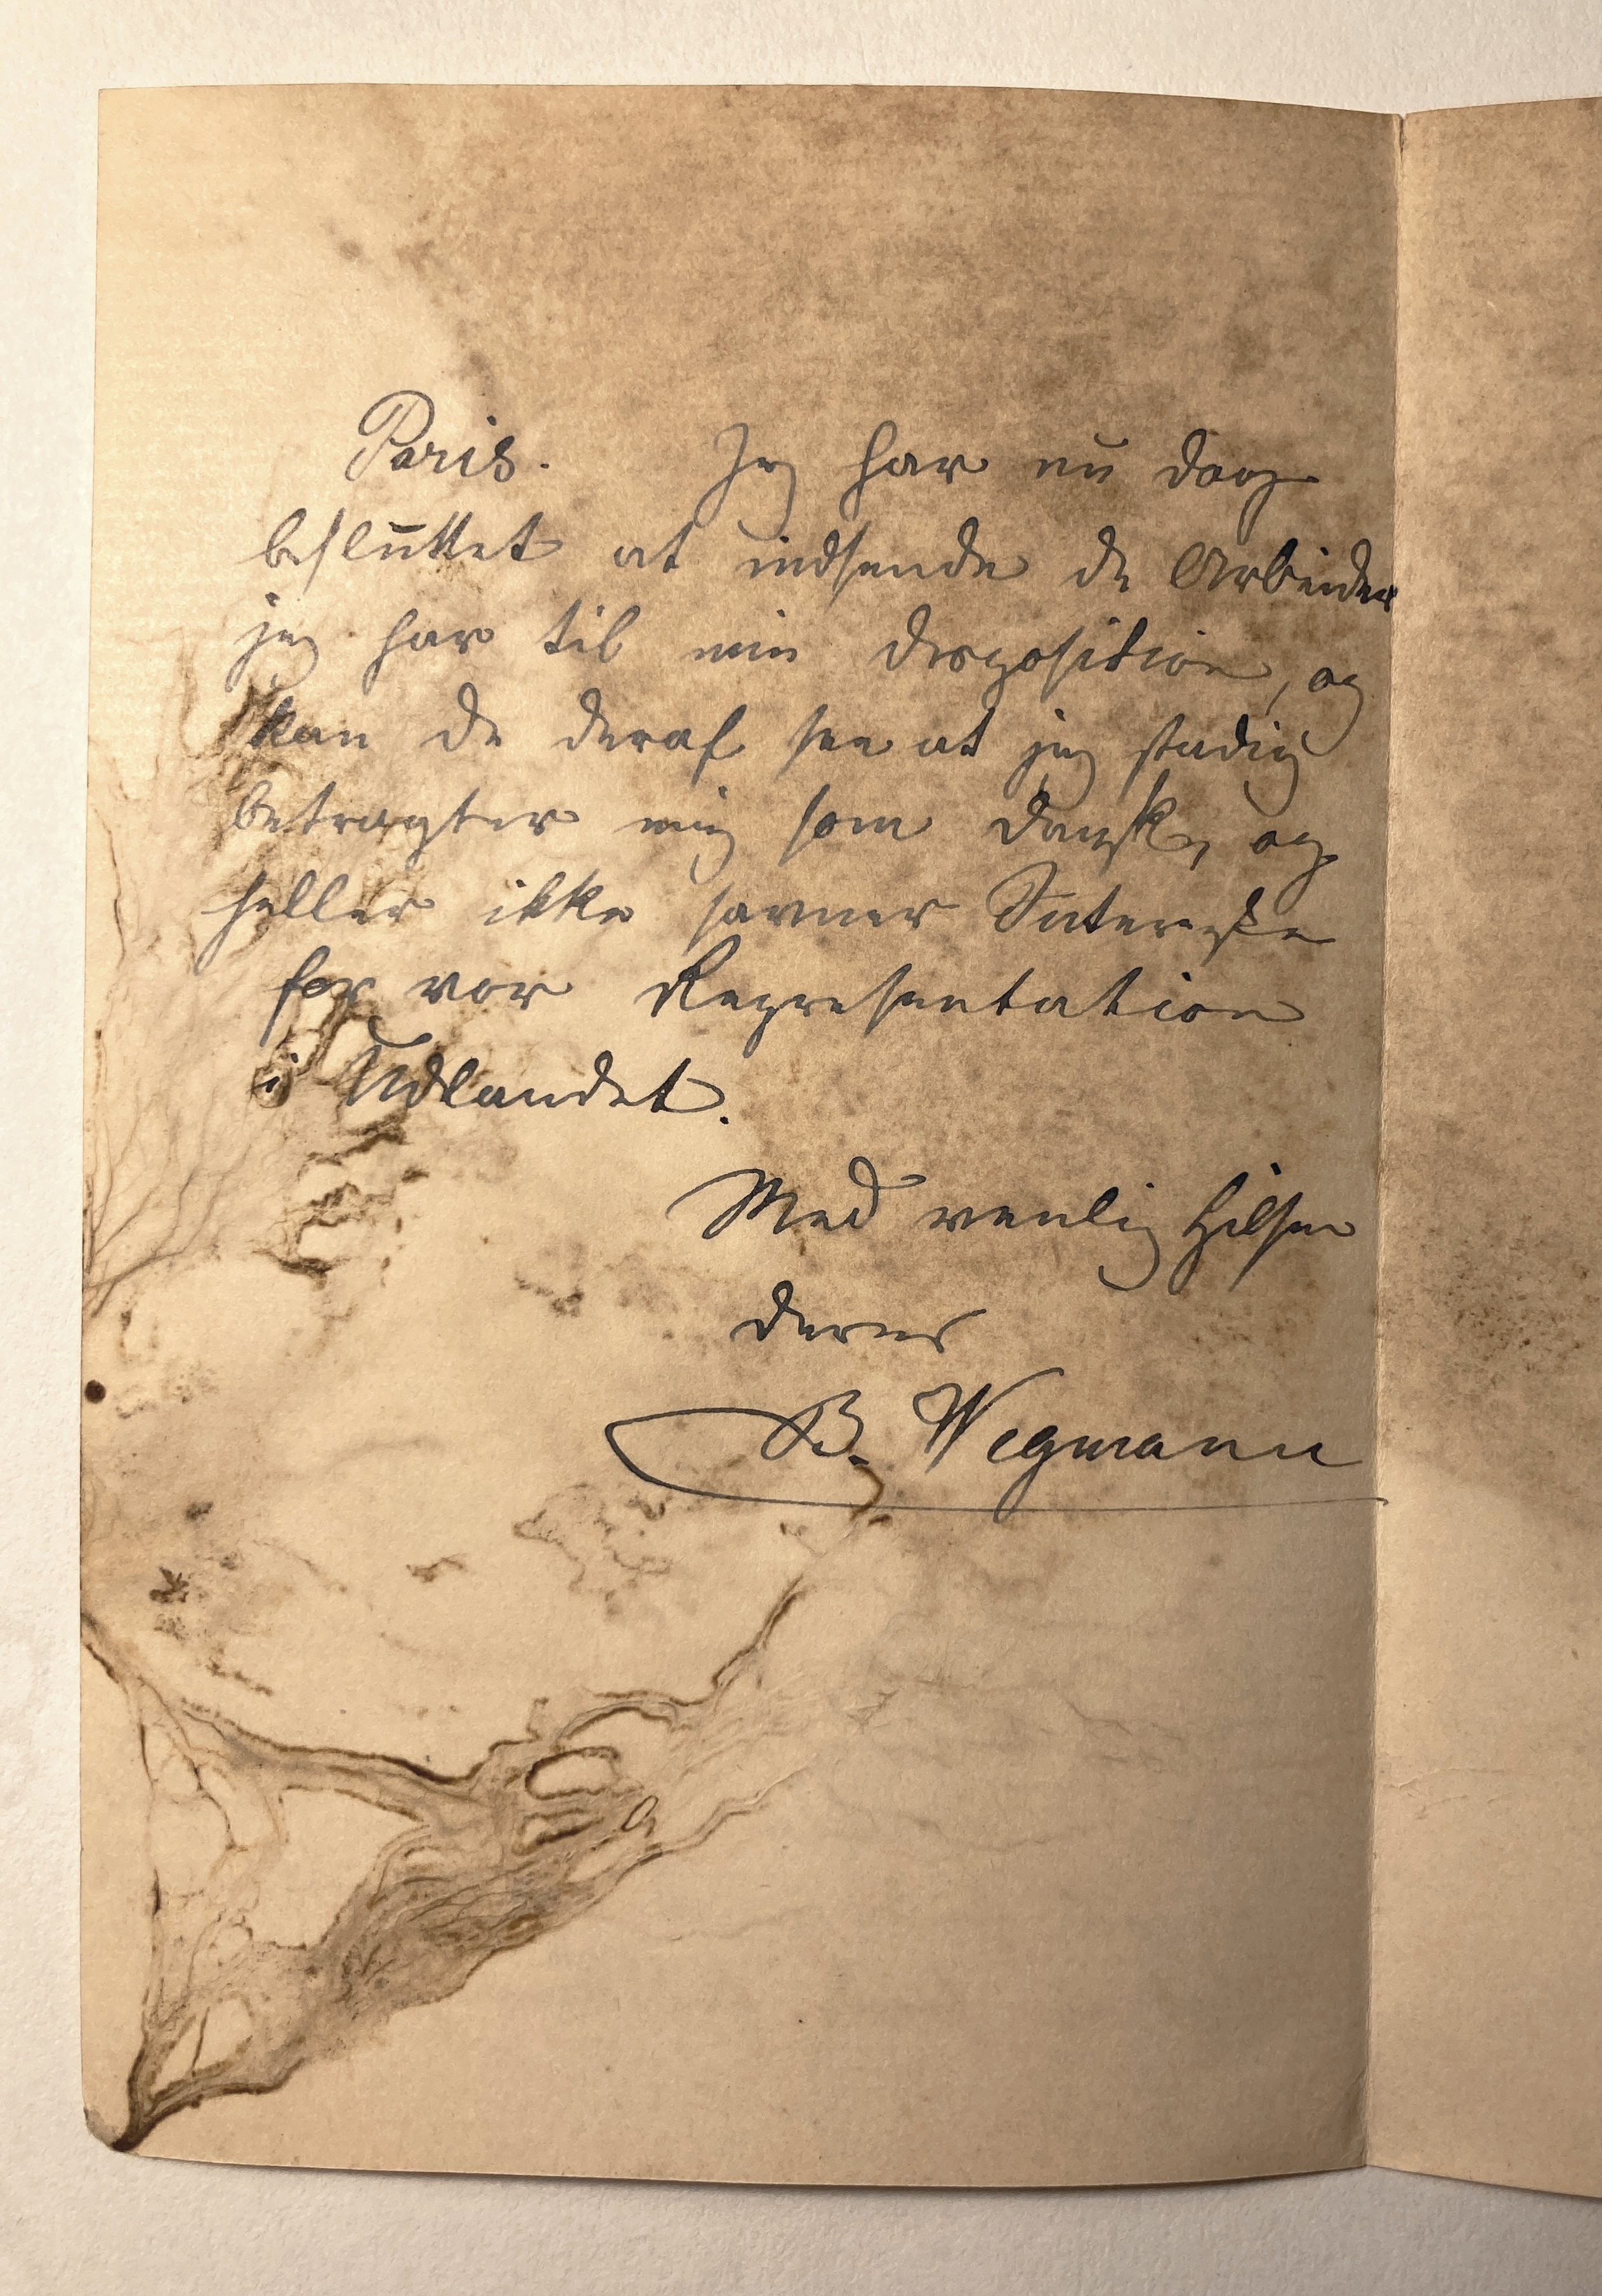 Paris. Jeg har nu dog
besluttet at indsende de Arbeider
jeg har til min disposition, og
kan de deraf see at jeg stadig
betragter mig som dansk, og
heller ikke savner Interesse
for vor Representation
i Udlandet.
Med venlig Hilsen
deres
B. Wegmann